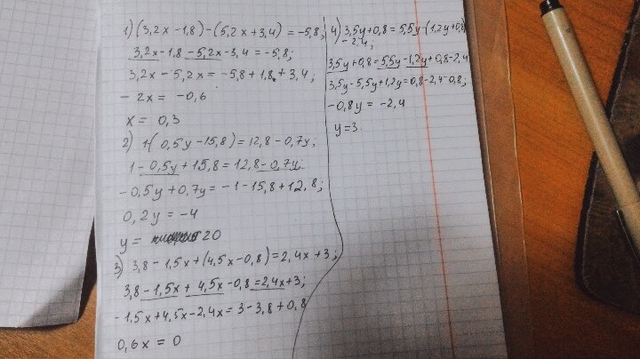 1) (3,2x - 1,8) - (5,2x + 3,4) = -5,8;
3,2x - 1,8 - 5,2x - 3,4 = -5,8;
3,2x - 5,2x = -5,8 + 1,8 + 3,4;
- 2x = -0,6
x = 0,3
2) 1-(0,5y - 15,8) = 12,8 - 0,7y;
1 - 0,5y + 15,8 = 12,8 - 0,7y;
-0,5y + 0,7y = -1 - 15,8 + 12,8;
0,2y = -4
y = 20
3) 3,8 - 1,5x + (4,5x - 0,8) = 2,4x + 3;
3,8 - 1,5x + 4,5x - 0,8 = 2,4x + 3;
-1,5x + 4,5x - 2,4x = 3 - 3,8 + 0,8
0,6x = 0
4) 3,5y + 0,8 = 5,5y - (1,2y + 0,8)
- 2,4;
3,5y + 0,8 = 5,5y - 1,2y + 0,8 - 2,4
3,5y - 5,5y + 1,2y = 0,8 - 2,4 - 0,8;
-0,8y = -2,4
y = 3